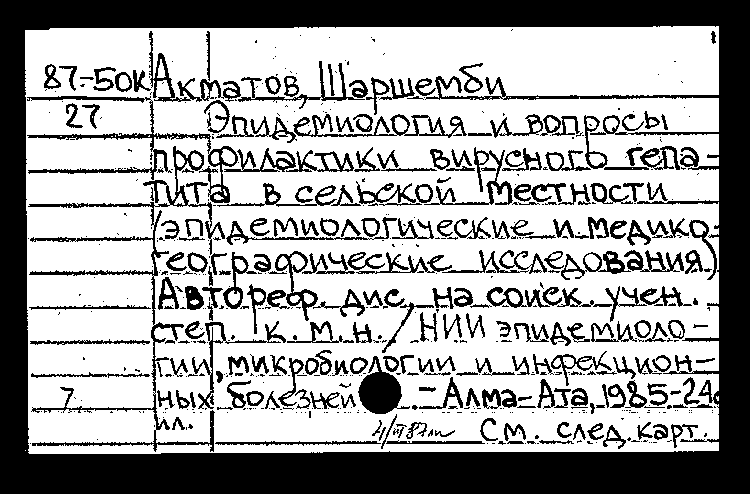 87-50К Акматов, Шаршемби
27 Эпидемиология и вопросы
профилактики вирусного гепа-
тита в сельской местности
(эпидемиологические и медико-
географические исследования)
Автореф. дис. на соиск. учен.
степ. к.м.н. / НИИ эпидемиоло-
гии, микробиологии и инфекцион-
7. ных болезней . - Алма-Ата, 1985-24с
ил.
См. след. карт.